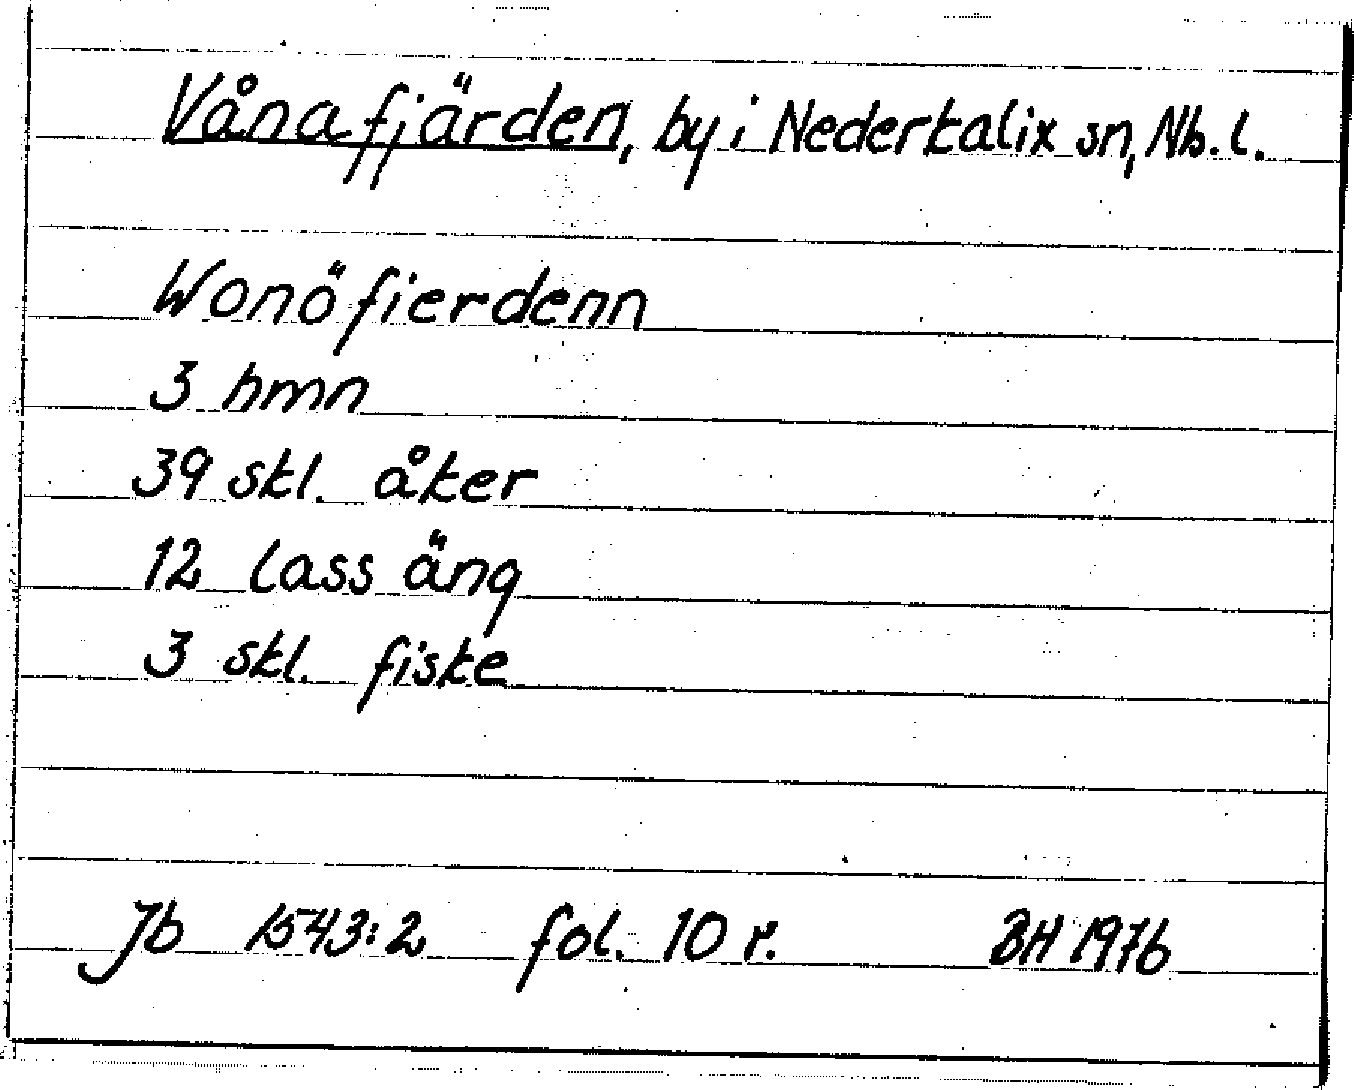 Vånafjärden, by i Nederkalix sn, Nb. l.
Wonöfierdenn
3 hmn
39 skl. åker
12 lass äng
3 skl. fiske
Jb 1543:2 fol. 10 r. BH 1976